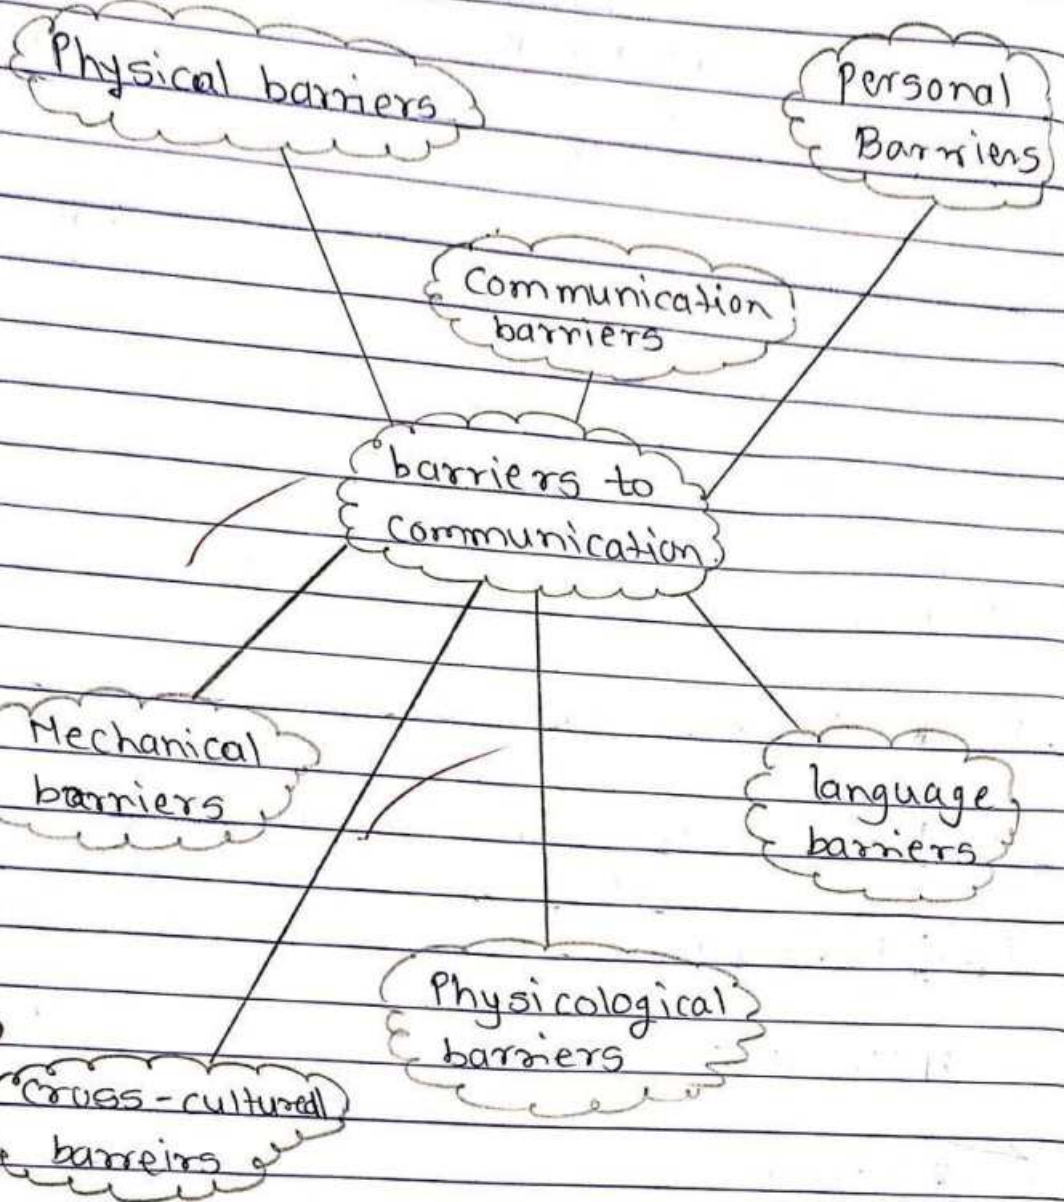 Physical barriers
Personal
Barriers
Communication
barriers
barriers to
communication.
Mechanical
barriers
language
barriers
Physicological
barriers
Cross-cultured
barreirs